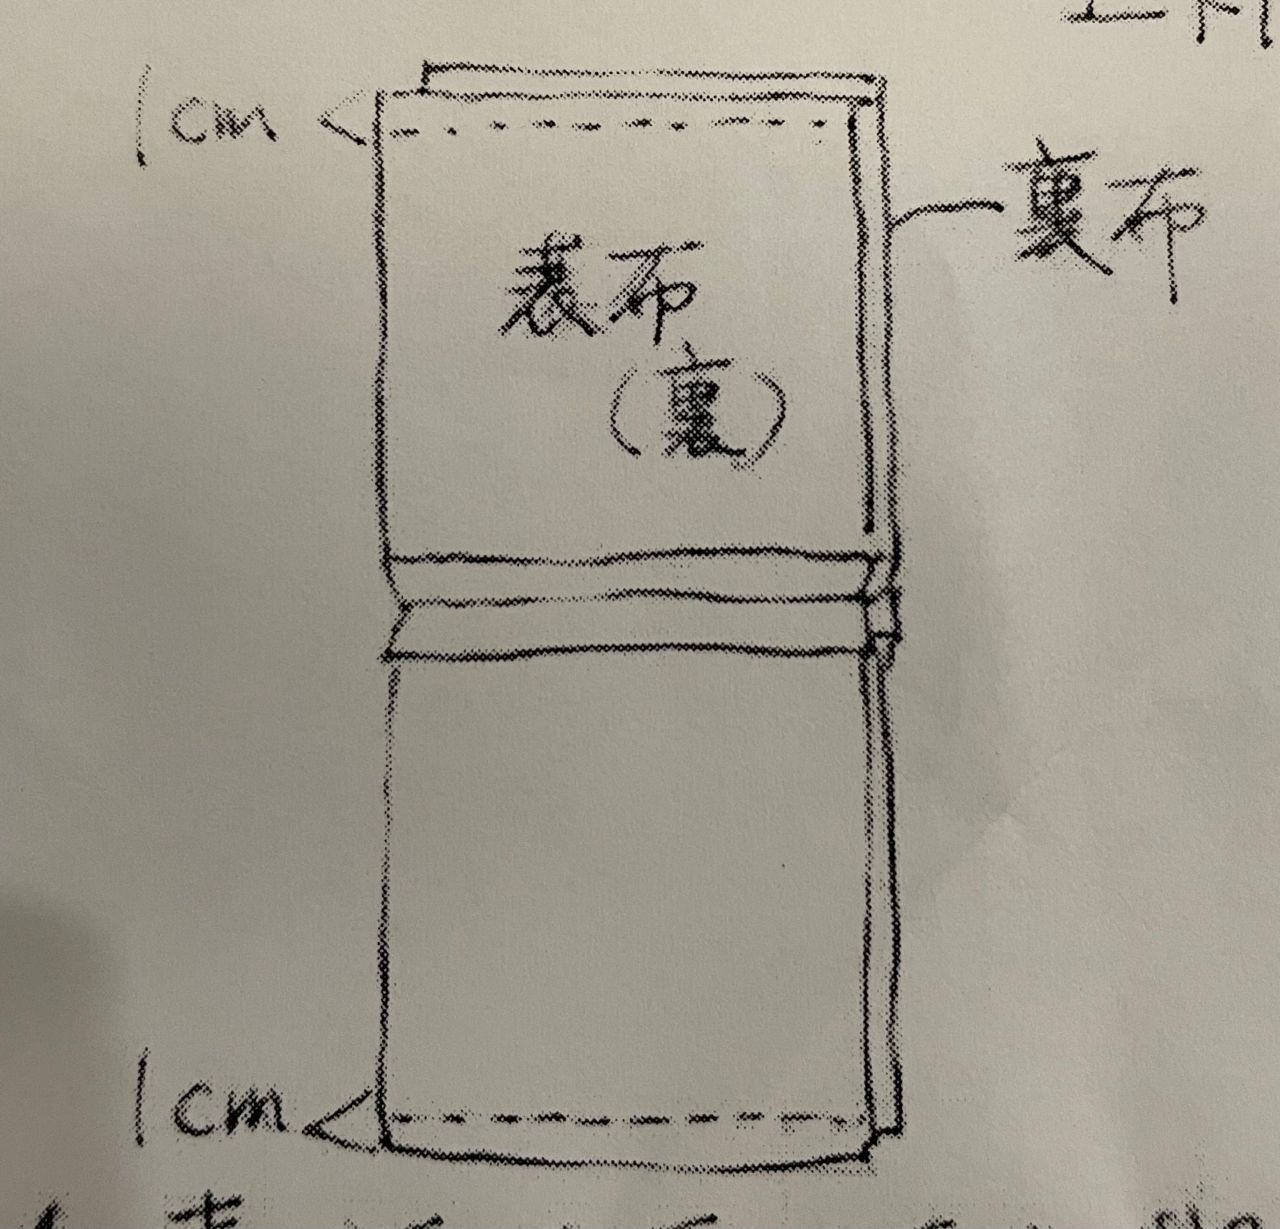 1cm
裏布
表布
(裏)
1cm